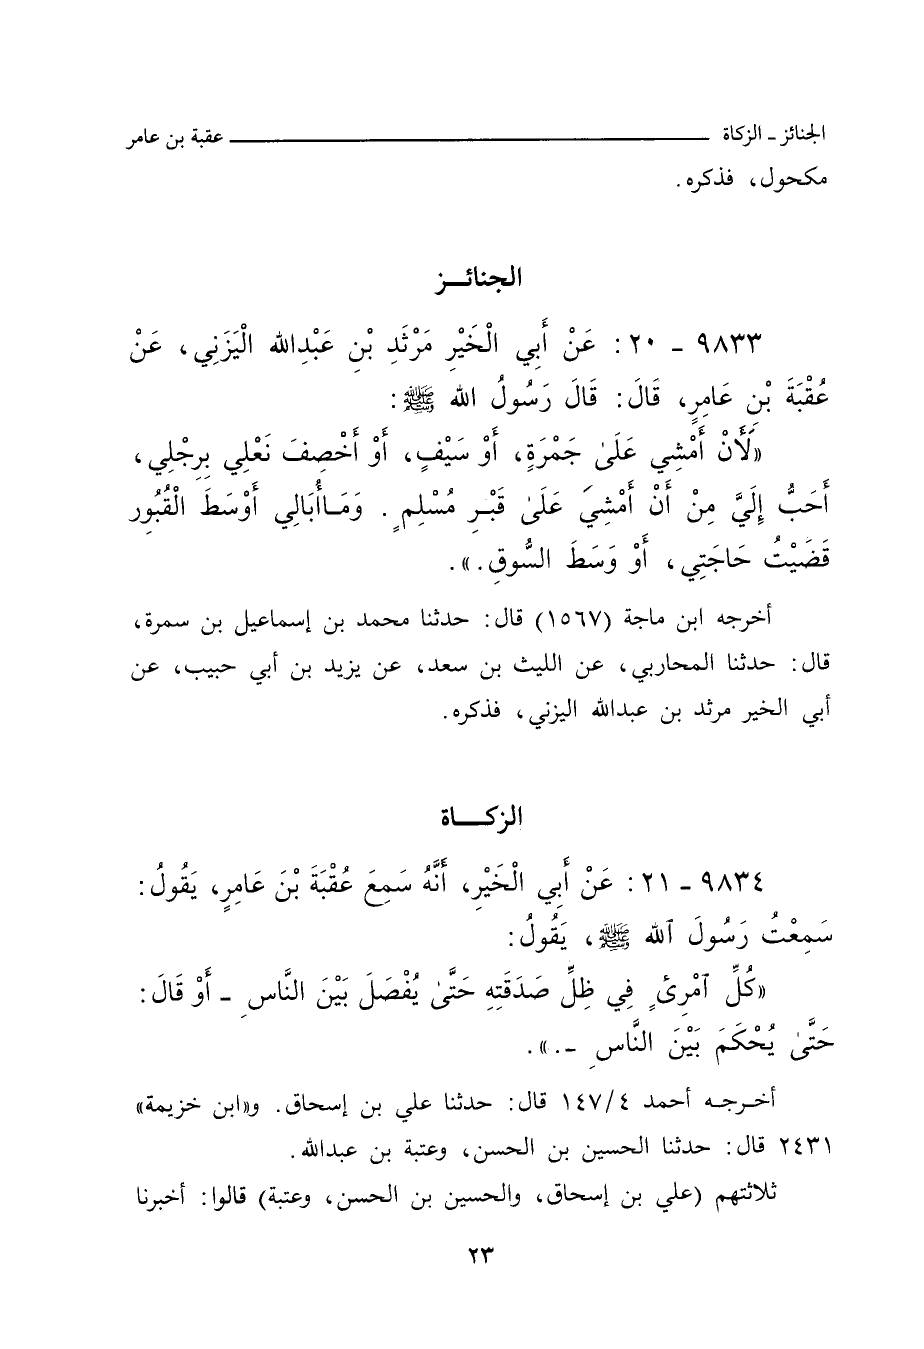 الجنائز - الزكاة ــــــــــــــــ عقبة بن عامر
مكحول، فذكره.
الجنائـــز
٩٨٣٣ - ٢٠: عَنْ أَبِي الْخَيْرِ مَرْثَدِ بْنِ عَبْدِالله الْيَزَنِي، عَنْ
عُقْبَةَ بْنِ عَامِرٍ، قَالَ: قَالَ رَسُولُ الله ﷺ:
«لَأَنْ أَمْشِي عَلَىٰ جَمْرَةٍ، أَوْ سَيْفٍ، أَوْ أَخْصِفَ نَعْلِي بِرِجْلِي،
أَحَبُّ إِلَيَّ مِنْ أَنْ أَمْشِيَ عَلَىٰ قَبْـرِ مُسْلِمٍ. وَمَـاأُبَالِي أَوْسَطَ الْقُبُورِ
قَضَيْتُ حَاجَتِي، أَوْ وَسَطَ السُّوقِ.».
أخرجه ابن ماجة (١٥٦٧) قال: حدثنا محمد بن إسماعيل بن سمرة،
قال: حدثنا المحاربي، عن الليث بن سعد، عن يزيد بن أبي حبيب، عن
أبي الخير مرثد بن عبدالله اليزني، فذكره.
الزكـــاة
٩٨٣٤ - ٢١: عَنْ أَبِي الْخَيْرِ، أَنَّهُ سَمِعَ عُقْبَةَ بْنَ عَامِرٍ، يَقُولُ:
سَمِعْتُ رَسُولَ ٱلله ﷺ، يَقُولُ:
«كُلُّ ٱمْرِئٍ فِي ظِلِّ صَدَقَتِهِ حَتَّىٰ يُفْصَلَ بَيْنَ النَّاسِ - أَوْ قَالَ:
حَتَّىٰ يُحْكَمَ بَيْنَ النَّاسِ -.».
أخـرجـه أحمد ١٤٧/٤ قال: حدثنا علي بن إسحاق. و«ابن خزيمة»
٢٤٣١ قال: حدثنا الحسين بن الحسن، وعتبة بن عبدالله.
ثلاثتهم (علي بن إسحاق، والحسين بن الحسن، وعتبة) قالوا: أخبرنا
٢٣